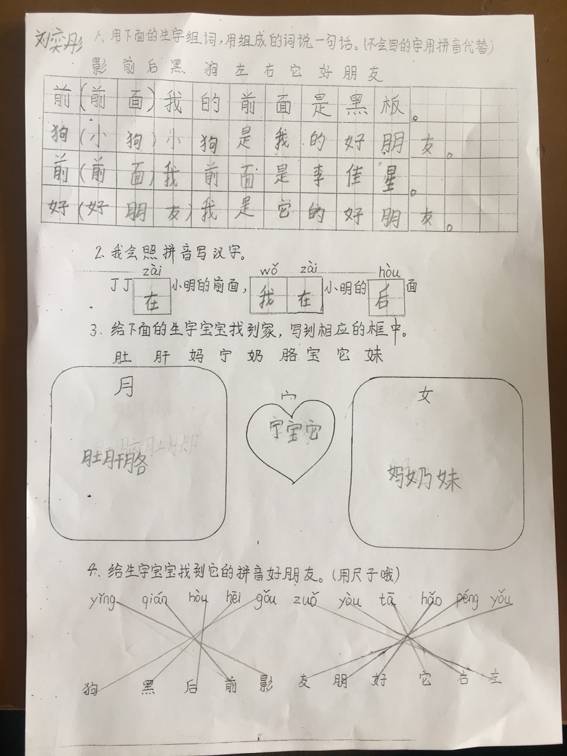 刘奕彤
1、用下面的生字组词,用组成的词说一句话。(不会写的字用拼音代替)
影 前 后 黑 狗 左 右 它 好 朋 友
前(前面)我的前面是黑板。
狗(小狗)小狗是我的好朋友。
前(前面)我前面是李佳星。
好(好朋友)我是它的好朋友。
2.我会照拼音写汉字。
zài wǒ zài hòu
丁丁在小明的前面,我在小明的后面
3、给下面的生字宝宝找到家,写到相应的框中。
肚 肝 妈 宁 奶 胳 宝 它 妹
月 宀 女
肚肝胳 宁宝它 妈奶妹
4、给生字宝宝找到它的拼音好朋友。(用尺子哦)
yǐng qián hòu hēi gǒu zuǒ yòu tā hǎo péng yǒu
狗 黑 后 前 影 友 朋 好 它 右 左